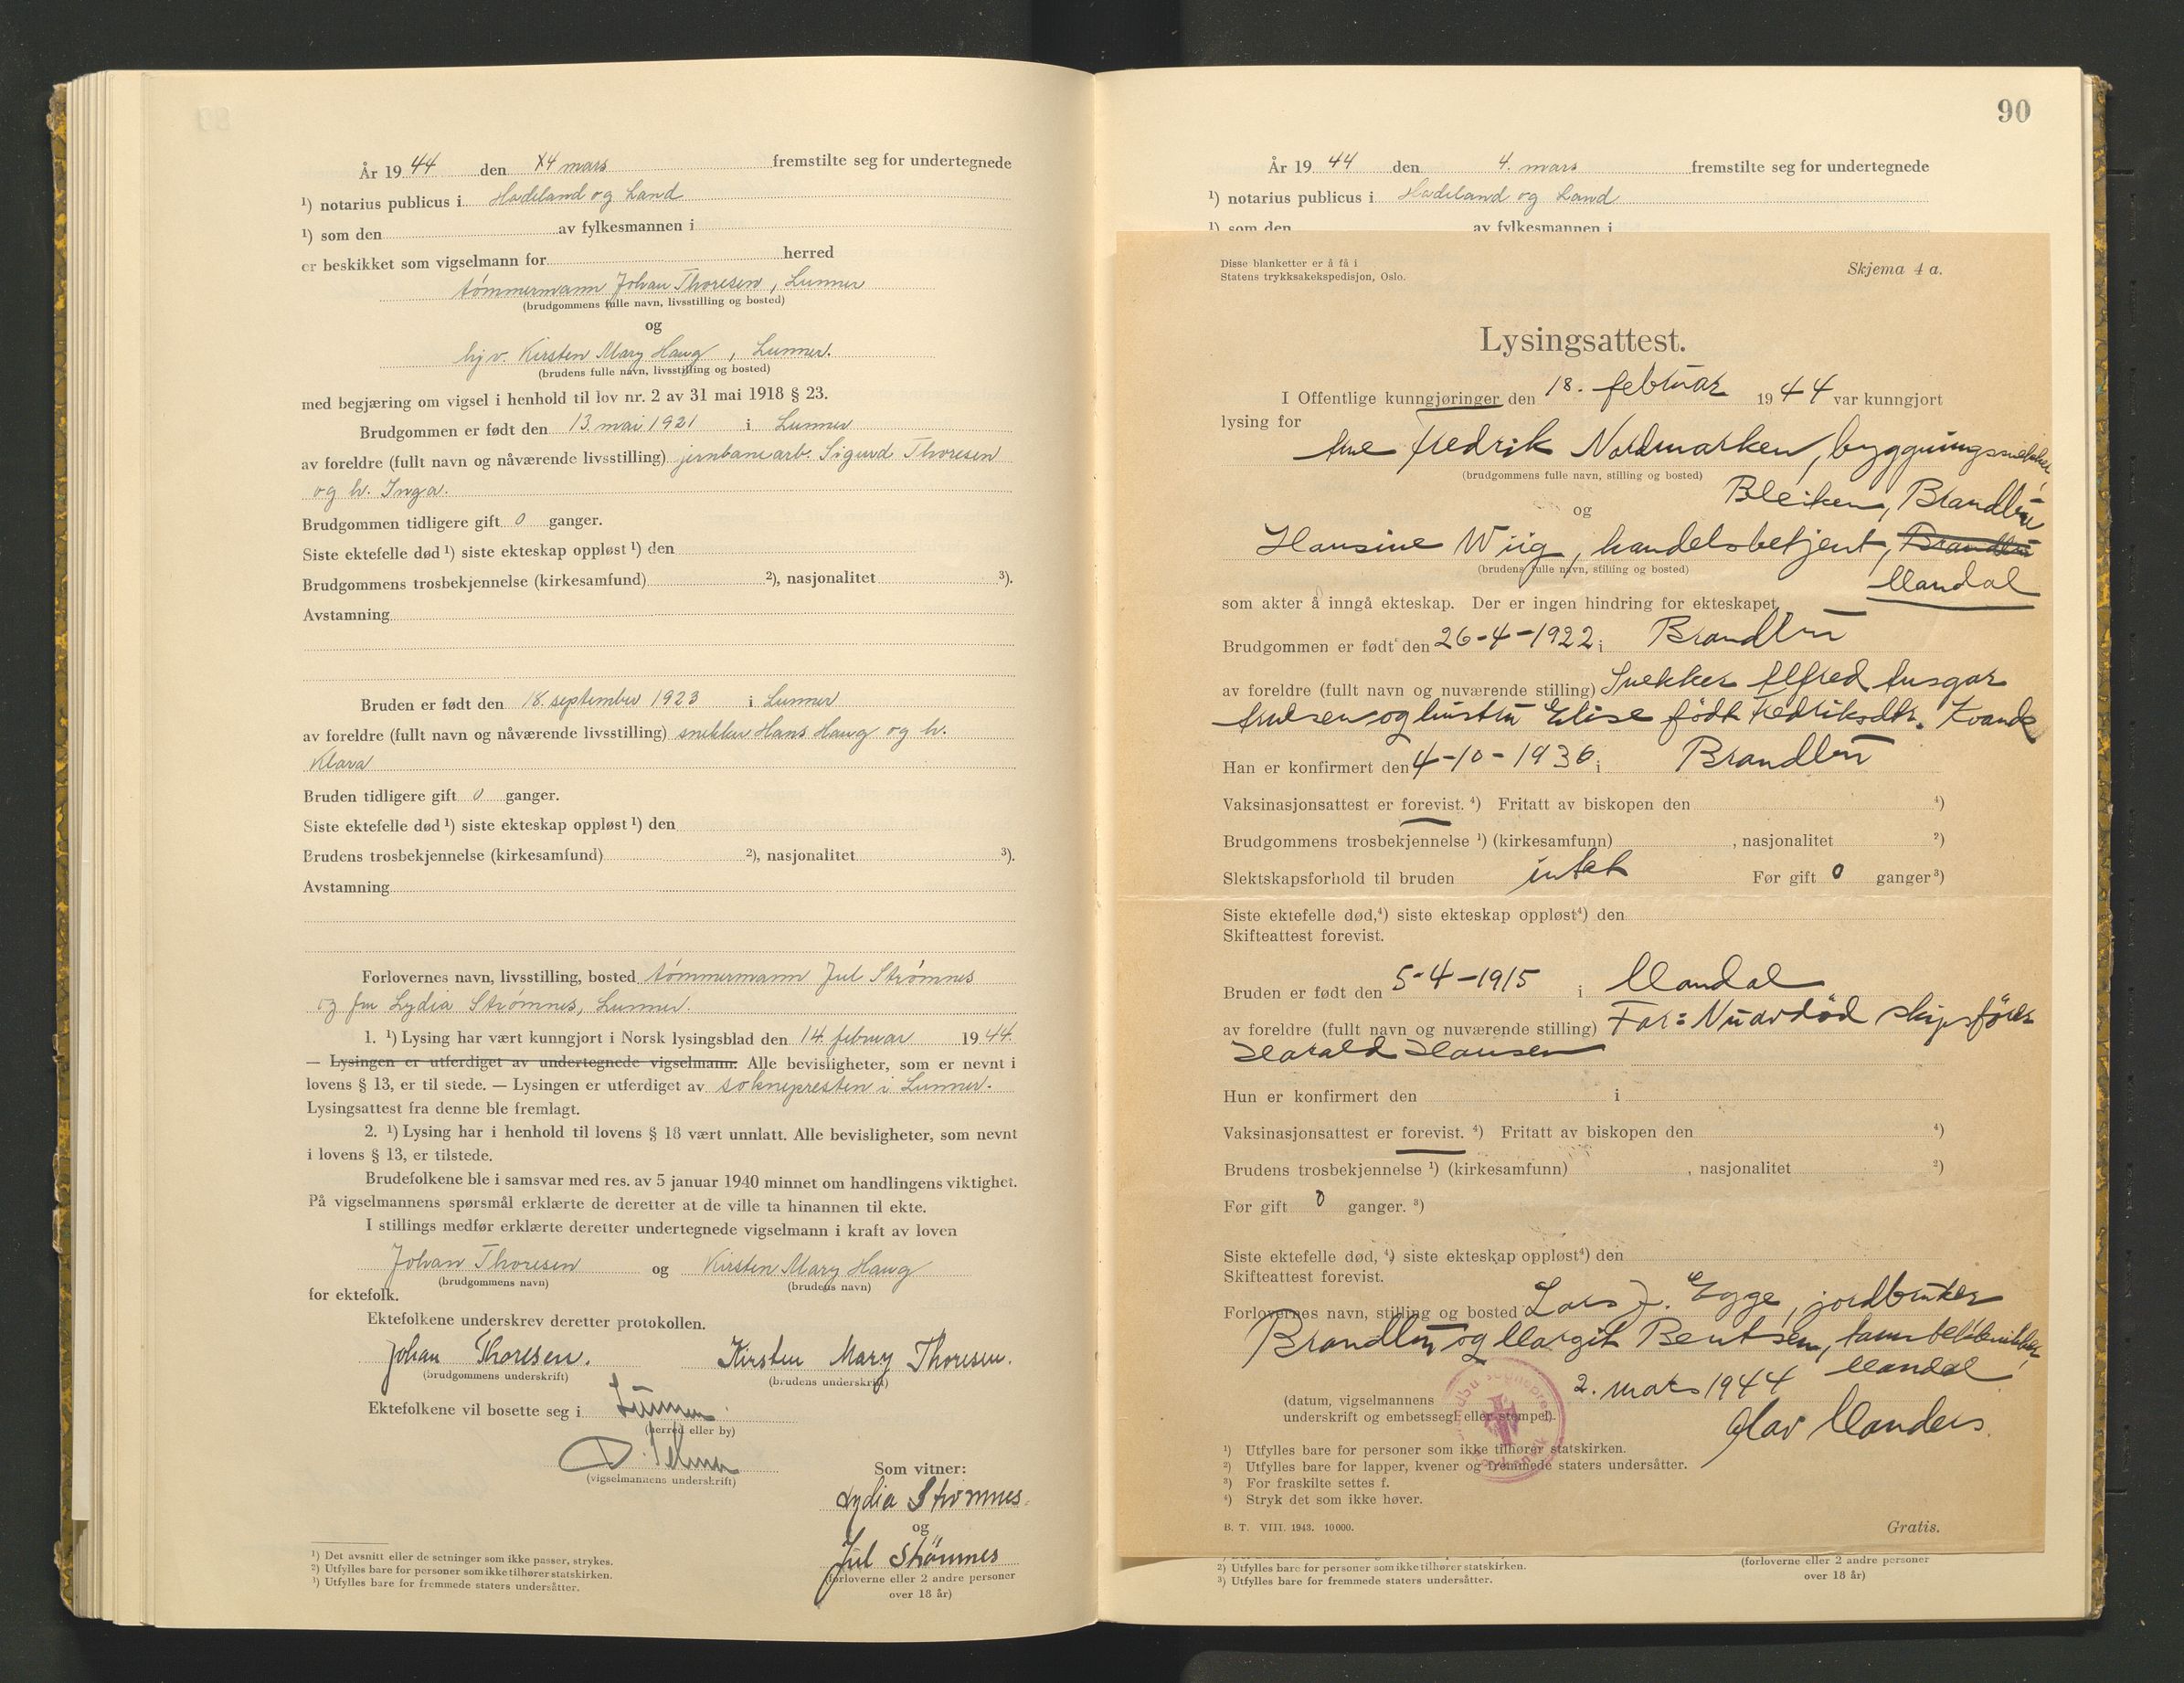 År 1944 den 4 mars fremstilte seg for undertegnede
¹) notarius publicus i Hadeland og Land
¹) som den av fylkesmannen i
er beskikket som vigselmann for herred
tømmermann Johan Thoresen, Lunner
(brudgommens fulle navn, livsstilling og bosted)
og
hj v. Kirsten Mary Haug, Lunner.
(brudens fulle navn, livsstilling og bosted)
med begjæring om vigsel i henhold til lov nr. 2 av 31 mai 1918 § 23.
Brudgommen er født den 13. mai 1921 i Lunner
av foreldre (fullt navn og nåværende livsstilling) jernbanearb. Sigurd Thoresen
og h. Inga.
Brudgommen tidligere gift 0 ganger.
Siste ektefelle død ¹) siste ekteskap oppløst ¹) den
Brudgommens trosbekjennelse (kirkesamfund) ²), nasjonalitet ³).
Avstamning
Bruden er født den 18. september 1923 i Lunner
av foreldre (fullt navn og nåværende livsstilling) snekker Hans Haug og h.
Klara
Bruden tidligere gift 0 ganger.
Siste ektefelle død ¹) siste ekteskap oppløst ¹) den
Brudens trosbekjennelse (kirkesamfund) ²), nasjonalitet ³).
Avstamning
Forlovernes navn, livsstilling, bosted tømmermann Jul Strømnes
og fru Lydia Strømnes, Lunner.
1. ¹) Lysing har vært kunngjort i Norsk lysingsblad den 14. februar 1944.
— Lysingen er utferdiget av undertegnede vigselmann. Alle bevisligheter, som er nevnt i
lovens § 13, er til stede. — Lysingen er utferdiget av soknepresten i Lunner.
Lysingsattest fra denne ble fremlagt.
2. ¹) Lysing har i henhold til lovens § 18 vært unnlatt. Alle bevisligheter, som nevnt
i lovens § 13, er tilstede.
Brudefolkene ble i samsvar med res. av 5 januar 1940 minnet om handlingens viktighet.
På vigselmannens spørsmål erklærte de deretter at de ville ta hinannen til ekte.
I stillings medfør erklærte deretter undertegnede vigselmann i kraft av loven
Johan Thoresen og Kirsten Mary Haug
(brudgommens navn) (brudens navn)
for ektefolk.
Ektefolkene underskrev deretter protokollen.
Johan Thoresen. Kirsten Mary Thoresen.
(brudgommens underskrift) (brudens underskrift)
Ektefolkene vil bosette seg i Lunner.
(herred eller by)
(vigselmannens underskrift)
Som vitner:
Lydia Strømnes.
og
Jul Strømnes
(forloverne eller 2 andre personer
over 18 år)
¹) Det avsnitt eller de setninger som ikke passer, strykes.
²) Utfylles bare for personer som ikke tilhører statskirken.
³) Utfylles bare for fremmede staters undersåtter.
90
År 1944 den 4. mars fremstilte seg for undertegnede
¹) notarius publicus i Hadeland og Land
¹) som den av fylkesmannen i
Disse blanketter er å få i
Statens trykksakekspedisjon, Oslo.
Skjema 4 a.
Lysingsattest.
I Offentlige kunngjøringer den 18. februar 1944 var kunngjort
lysing for
Arne Fredrik Nordmarken, byggningssnekker,
(brudgommens fulle navn, stilling og bosted)
Bleiken, Brandbu
og
Hansine Wiig, handelsbetjent, Brandbu
(brudens fulle navn, stilling og bosted)
Mandal
som akter å inngå ekteskap. Der er ingen hindring for ekteskapet
Brudgommen er født den 26-4-1922 i Brandbu
av foreldre (fullt navn og nuværende stilling) Snekker Alfred Ansgar
Arnesen og hustru Elise født Fredriksdtr. Kvande
Han er konfirmert den 4-10-1936 i Brandbu
Vaksinasjonsattest er forevist. ⁴) Fritatt av biskopen den ⁴)
Brudgommens trosbekjennelse ¹) (kirkesamfunn) , nasjonalitet ²)
Slektskapsforhold til bruden intet Før gift 0 ganger ³)
Siste ektefelle død, ⁴) siste ekteskap oppløst ⁴) den
Skifteattest forevist.
Bruden er født den 5-4-1915 i Mandal
av foreldre (fullt navn og nuværende stilling) Far: Nu avdød skipsfører
Harald Hansen
Hun er konfirmert den i
Vaksinasjonsattest er forevist. ⁴) Fritatt av biskopen den ⁴)
Brudens trosbekjennelse ¹) (kirkesamfunn) , nasjonalitet ²)
Før gift 0 ganger. ³)
Siste ektefelle død, ⁴) siste ekteskap oppløst ⁴) den
Skifteattest forevist.
Forlovernes navn, stilling og bosted Lars J. Egge, jordbruker
Brandbu og Margit Bentsen, Mandal
2. mars 1944
(datum, vigselmannens
underskrift og embetssegl eller stempel).
Olav Manders.
¹) Utfylles bare for personer som ikke tilhører statskirken.
²) Utfylles bare for lapper, kvener og fremmede staters undersåtter.
³) For fraskilte settes f.
⁴) Stryk det som ikke høver.
B. T. VIII. 1943. 10000.
Gratis.
²) Utfylles bare for personer som ikke tilhører statskirken.
³) Utfylles bare for fremmede staters undersåtter.
(forloverne eller 2 andre personer
over 18 år)